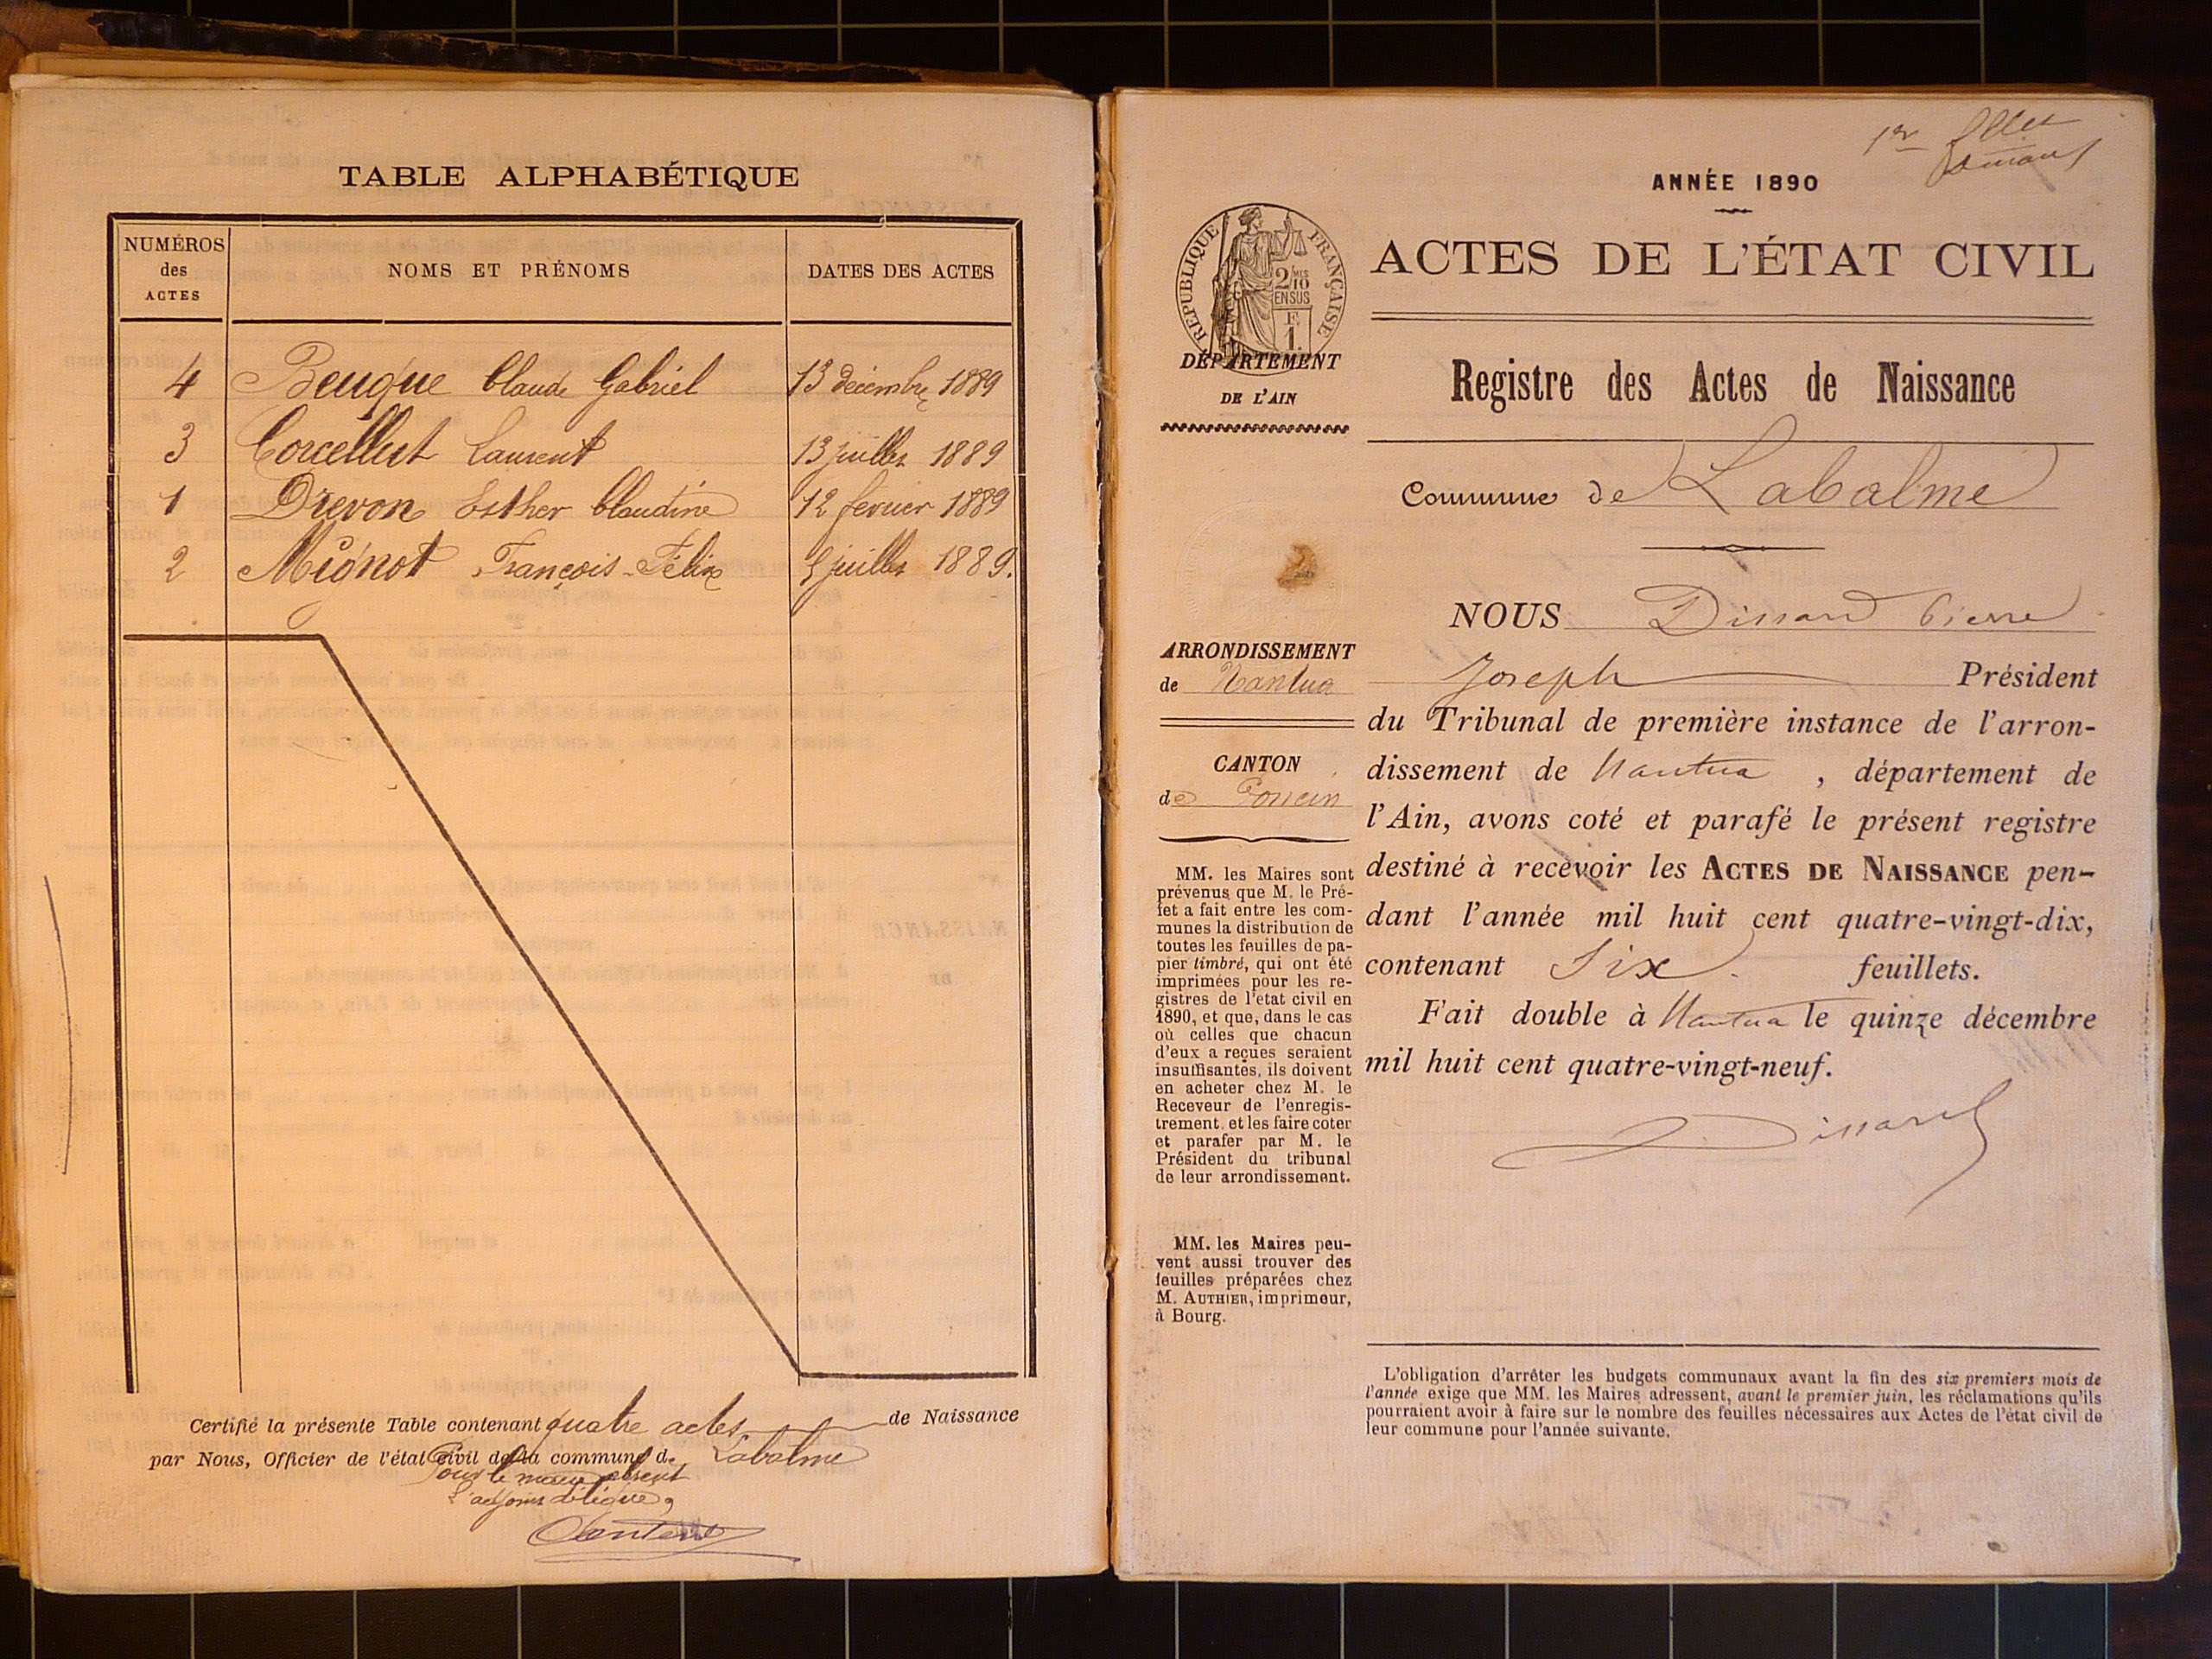 TABLE ALPHABÉTIQUE
NUMÉROS des ACTES
NOMS ET PRÉNOMS
DATES DES ACTES
4 Beuque Claude Gabriel 13 décembre 1889
3 Corcellut Laurent 13 juillet 1889
1 Drevon Esther Claudine 12 février 1889
2 Mignot François-Félix 5 juillet 1889.
Certifié la présente Table contenant quatre actes de Naissance
par Nous, Officier de l'état civil de la commune de Labalme
Pour le maire absent
L'adjoint délégué,
1er
ANNÉE 1890
RÉPUBLIQUE FRANÇAISE
2/10 EN SUS
F. 1.
ACTES DE L'ÉTAT CIVIL
DÉPARTEMENT
DE L'AIN
Registre des Actes de Naissance
Commune de Labalme
ARRONDISSEMENT
de Nantua
CANTON
de Poncin
MM. les Maires sont
prévenus que M. le Pré-
fet a fait entre les com-
munes la distribution de
toutes les feuilles de pa-
pier timbré, qui ont été
imprimées pour les re-
gistres de l'état civil en
1890, et que, dans le cas
où celles que chacun
d'eux a reçues seraient
insuffisantes, ils doivent
en acheter chez M. le
Receveur de l'enregis-
trement, et les faire coter
et parafer par M. le
Président du tribunal
de leur arrondissement.
MM. les Maires peu-
vent aussi trouver des
feuilles préparées chez
M. AUTHIER, imprimeur,
à Bourg.
NOUS Dissard Pierre
Joseph Président
du Tribunal de première instance de l'arron-
dissement de Nantua, département de
l'Ain, avons coté et parafé le présent registre
destiné à recevoir les ACTES DE NAISSANCE pen-
dant l'année mil huit cent quatre-vingt-dix,
contenant Six feuillets.
Fait double à Nantua le quinze décembre
mil huit cent quatre-vingt-neuf.
Dissard
L'obligation d'arrêter les budgets communaux avant la fin des six premiers mois de
l'année exige que MM. les Maires adressent, avant le premier juin, les réclamations qu'ils
pourraient avoir à faire sur le nombre des feuilles nécessaires aux Actes de l'état civil de
leur commune pour l'année suivante.